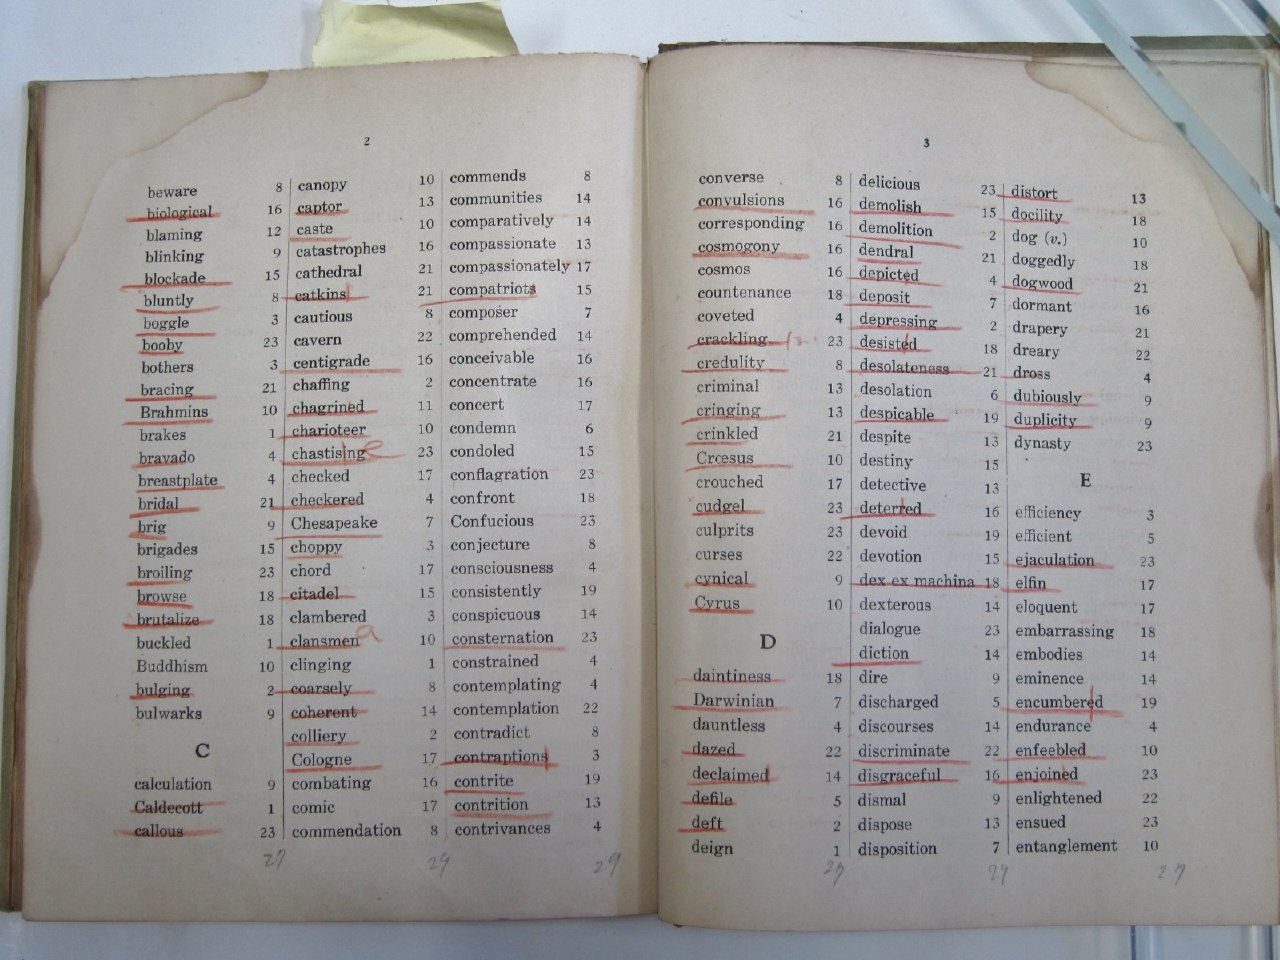 2
beware 8
biological 16
blaming 12
blinking 9
blockade 15
bluntly 8
boggle 3
booby 23
bothers 3
bracing 21
Brahmins 10
brakes 1
bravado 4
breastplate 4
bridal 21
brig 9
brigades 15
broiling 23
browse 18
brutalize 18
buckled 1
Buddhism 10
bulging 2
bulwarks 9
C
calculation 9
Caldecott 1
callous 23
27
canopy 10
captor 13
caste 10
catastrophes 16
cathedral 21
catkins 21
cautious 8
cavern 22
centigrade 16
chaffing 2
chagrined 11
charioteer 10
chastising e 23
checked 17
checkered 4
Chesapeake 7
choppy 3
chord 17
citadel 15
clambered 3
clansmen a 10
clinging 1
coarsely 8
coherent 14
colliery 2
Cologne 17
combating 16
comic 17
commendation 8
29
commends 8
communities 14
comparatively 14
compassionate 13
compassionately 17
compatriots 15
composer 7
comprehended 14
conceivable 16
concentrate 16
concert 17
condemn 6
condoled 15
conflagration 23
confront 18
Confucious 23
conjecture 8
consciousness 4
consistently 19
conspicuous 14
consternation 23
constrained 4
contemplating 4
contemplation 22
contradict 8
contraptions 3
contrite 19
contrition 13
contrivances 4
29
3
converse 8
convulsions 16
corresponding 16
cosmogony 16
cosmos 16
countenance 18
coveted 4
crackling 23
credulity 8
criminal 13
cringing 13
crinkled 21
Crœsus 10
crouched 17
cudgel 23
culprits 23
curses 22
cynical 9
Cyrus 10
D
daintiness 18
Darwinian 7
dauntless 4
dazed 22
declaimed 14
defile 5
deft 2
deign 1
27
delicious 23
demolish 15
demolition 2
dendral 21
depicted 4
deposit 7
depressing 2
desisted 18
desolateness 21
desolation 6
despicable 19
despite 13
destiny 15
detective 13
deterred 16
devoid 19
devotion 15
dex ex machina 18
dexterous 14
dialogue 23
diction 14
dire 9
discharged 5
discourses 14
discriminate 22
disgraceful 16
dismal 9
dispose 13
disposition 7
29
distort 13
docility 18
dog (v.) 10
doggedly 18
dogwood 21
dormant 16
drapery 21
dreary 22
dross 4
dubiously 9
duplicity 9
dynasty 23
E
efficiency 3
efficient 5
ejaculation 23
elfin 17
eloquent 17
embarrassing 18
embodies 14
eminence 14
encumbered 19
endurance 4
enfeebled 10
enjoined 23
enlightened 22
ensued 23
entanglement 10
27